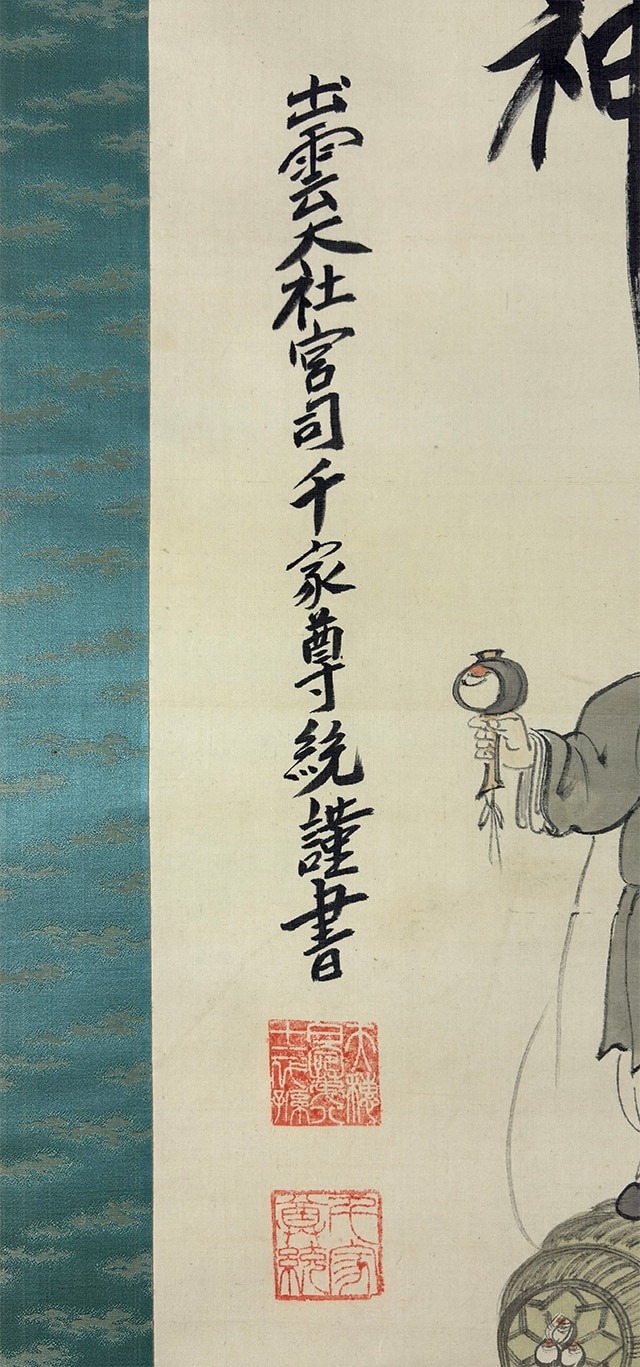 神
出雲大社宮司千家尊統謹書
千家尊統